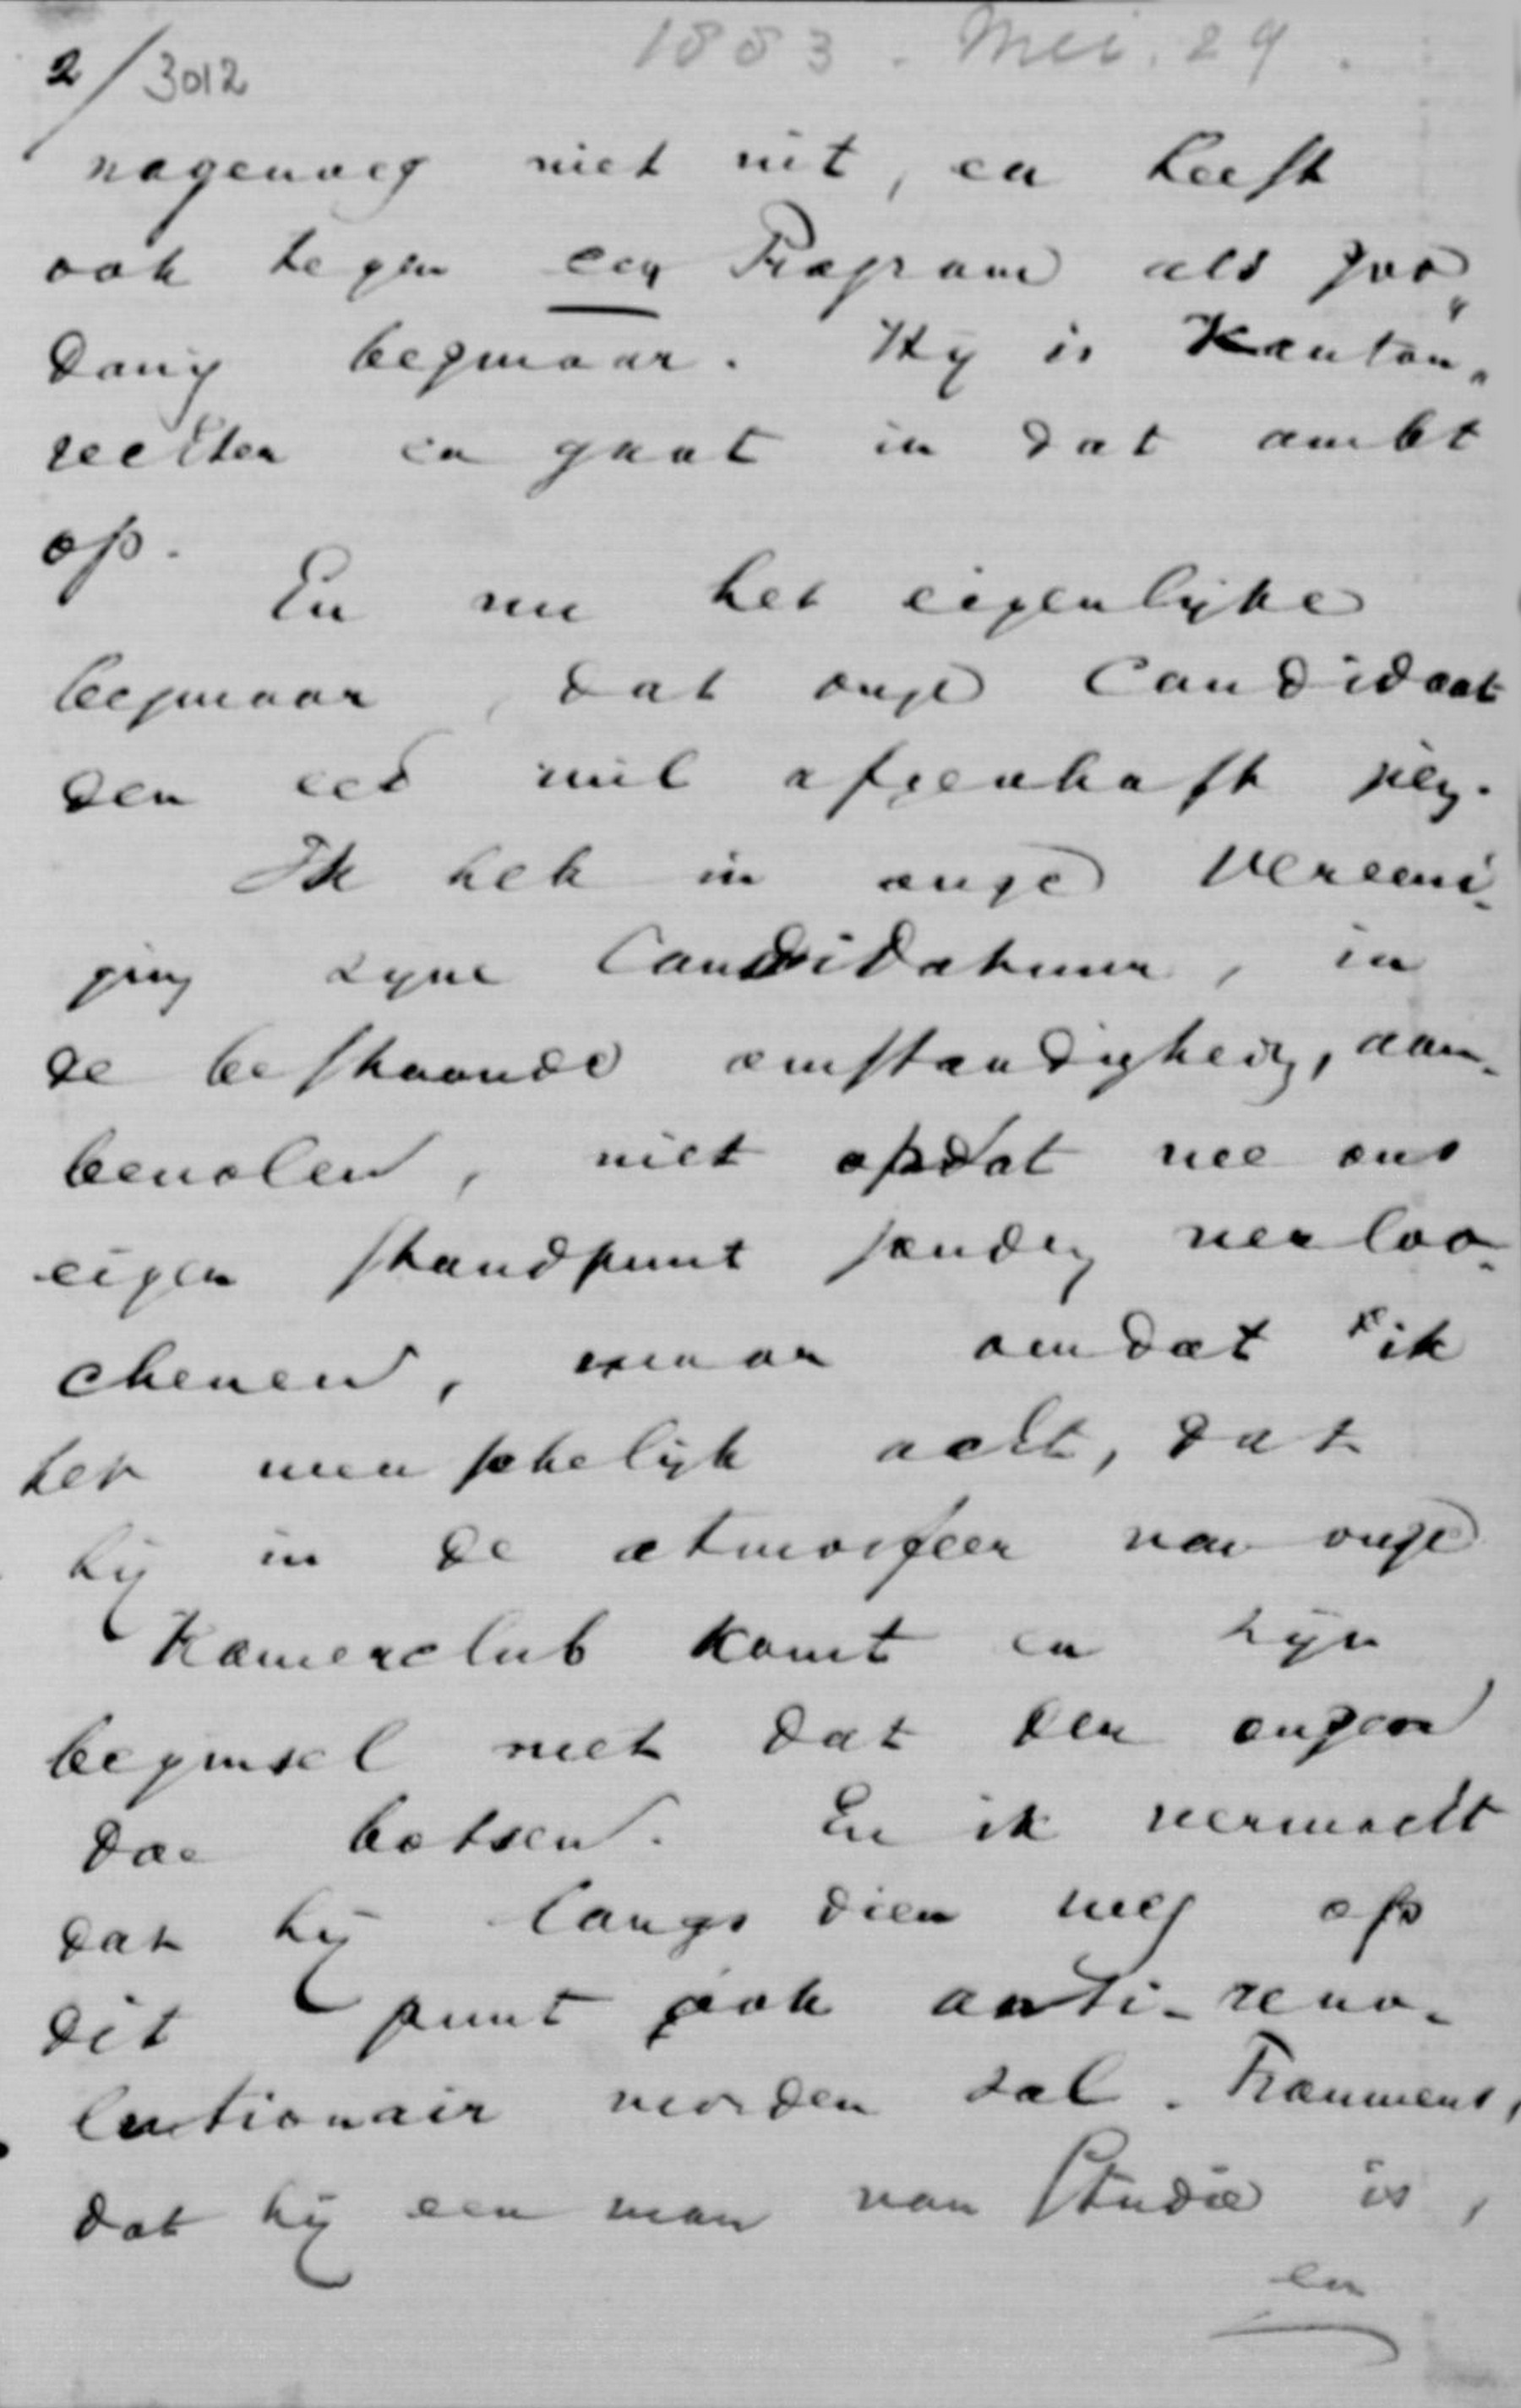 1883. Mei. 29.
2/3012
nagenoeg niet uit, en heeft
ook tegen een Program als zoo„
danig bezwaar. Hij is Kanton„
rechter en gaat in dat ambt
op.
En nu het eigenlijke
bezwaar, dat onze Candidaat
den eed wil afgeschaft zien.
Ik heb in onze Vereeni-
ging zijne Candidatuur, in
de bestaande omstandigheden, aan-
bevolen, niet opdat we ons
eigen standpunt zouden verloo-
chenen, maar omdat ik
het wenschelijk acht, dat
hij in de atmosfeer van onze
Kamerclub komt en zijn
beginsel met dat der onzen
doe botsen. En ik verwacht
dat hij langs dien weg op
dit punt ook anti-revo-
lutionair worden zal. Trouwens,
dat hij een man van Studie is,
en